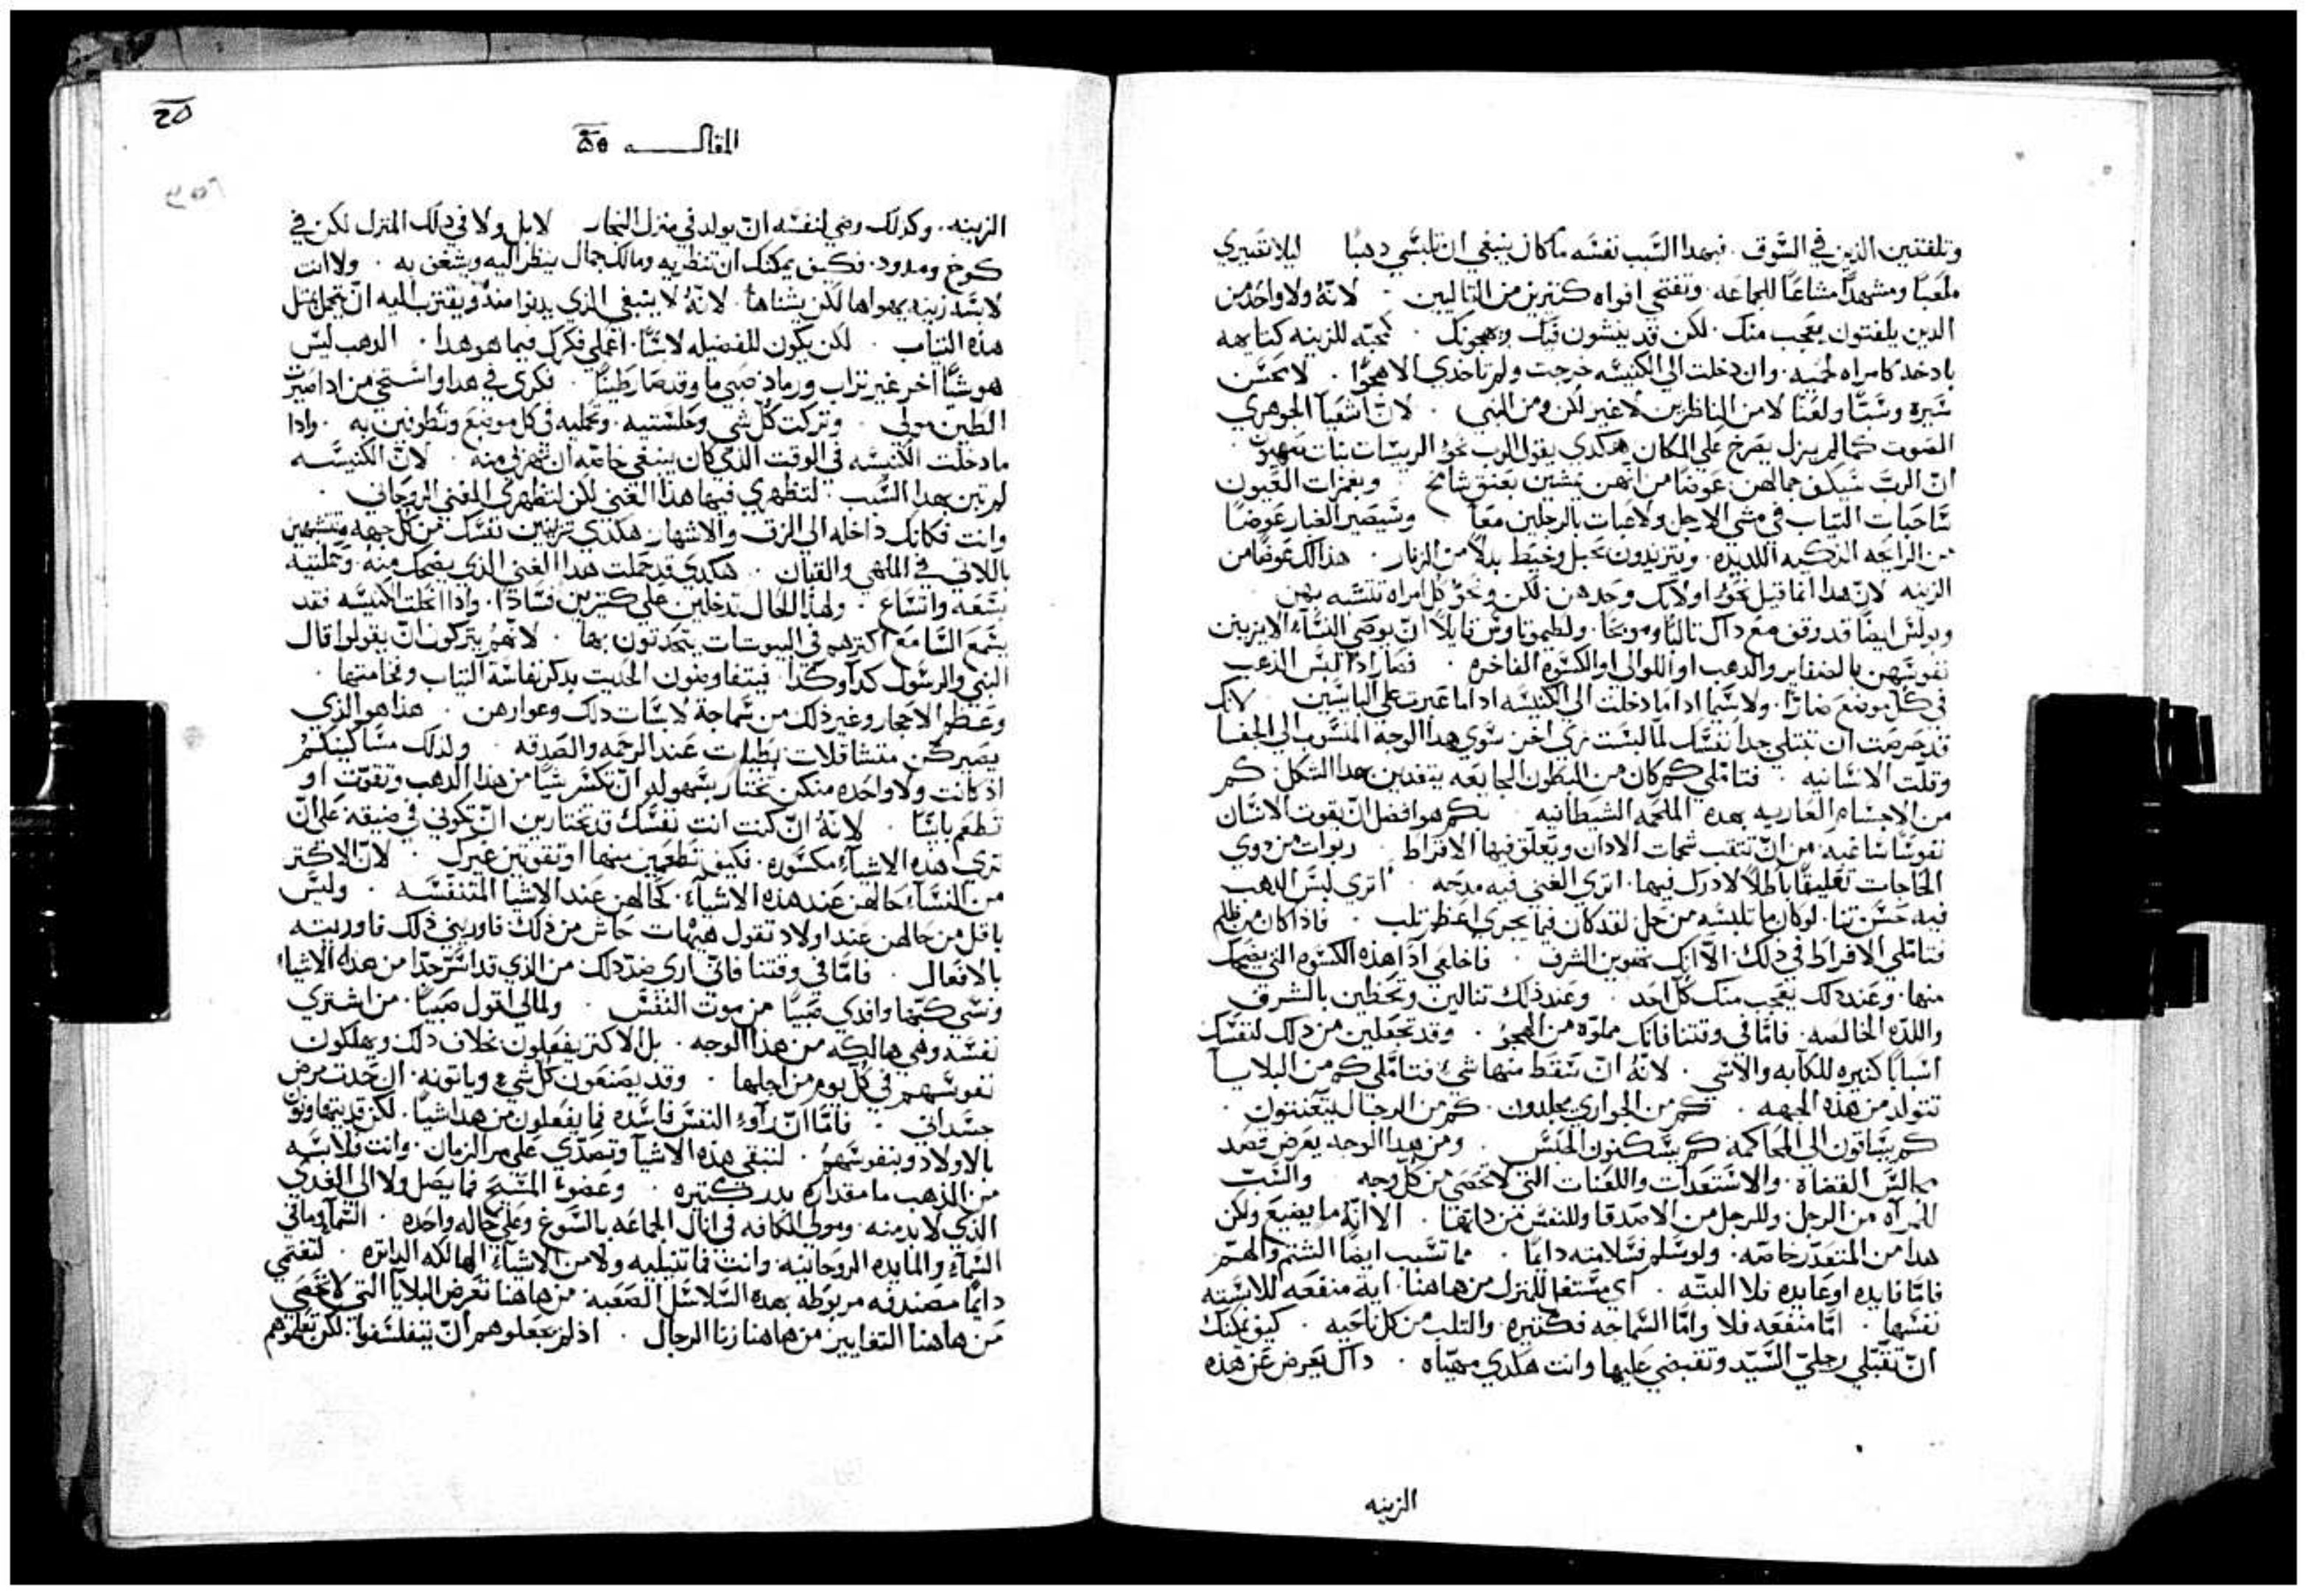 وتلفتين الذين في السوق. فبهدا السبب نفسه ما كان ينبغي ان تلبسي دهبًا ليلا تصيري
ملعبًا ومشهدًا مشاعًا للجماعه. وتفتحي افواه كتيرين من التاليين. لانه ولا واحد من
الدين يلفتون يعجب منك. لكن قد ينبشون فيك ويهجونك كمحبه للزينه كتايهه
باذخه كامراه لحميه. وان دخلت الي الكنيسه خرجت ولم تاخدي الا هجوًا. لا تحسن
سيره وسبًا ولعنًا لا من الناظرين لا غير لكن ومن النبي. لان اشعيا الجوهري
الصوت كما لم يزل يصرخ علي المكان هكدي يقول الرب نحو الريسات بنات صهيون
ان الرب سيكف جمالهن عوضًا من انهن تمشين بعنق شامخ وبغمزات العيون
ساحبات التياب في مشي الارجل ولاعبات بالرجلين معًا. وسيصير الغبار عوضًا
من الرايحه الدكيه اللديده. وتتزيدون بحبل وخيط بدلاً من الزنار. هدا لك عوضًا من
الزينه لان هدا انما قيل نحو اولايك وحدهن لكن ونحو كل امراه تتشبه بهن
وبولس ايضًا قد وقف مع داك تالبًا وموبخًا. ولطيموتاوس قايلاً ان يوصي النسآ الا يزينن
نفوسهن بالضفاير والدهب او اللوالي او الكسوه الفاخره. فصار ادًا لبس الدهب
في كل موضع ضارًا. ولا سيما ادا ما دخلت الي الكنيسه ادا ما عبرت علي البايسين لانك
قد حرصت ان تبتلي جدًا نفسك لما لبست تري اخر سوي هدا الوجه المنسوب الي الجفا
وقلت الانسانيه. فتاملي كم كان من البطون الجايعه يتغدين بهدا الشكل كم
من الاجسام العاريه بهده الملحمه الشيطانيه بكم هو افضل ان يقوت الانسان
نفوسًا ساغبه من ان تتقب شحمات الادان ويعلق فيها الاقراط ربوات من دوي
الحاجات تعليقًا باطلاً لا درك فيها. اتري الغني فيه مدحه. اتري لبس الدهب
فيه حسن تنا. لو كان ما تلبسه من حل لقد كان فيما يجري اعظم تلب. فادا كان من ظلم
فتاملي الافراط في دلك. الا انك تهوين الشرف. فاخلعي ادًا هذه الكسوه التي يضحك
منها. وعند دلك يعجب منك كل احد. وعند دلك تنالين وتحظين بالشرف
واللده الخالصه. فاما في وقتنا فانك مملوه من الهجو. وقد تجعلين من دلك لنفسك
اسبابًا كتيره للكآبه والاسي. لانه ان سقط منها شي فتاملي كم من البلايا
تتولد من هذه الجهه. كم من الجواري يجلدون. كم من الرجال يتعنتون.
كم يساقون الي المحاكمه كم يسكنون الحبس. ومن هدا الوجه يعرض قصد
مجالس القضاه. والاستعدات واللعنات التي لا تحصي من كل وجه والسب
للمرآه من الرجل وللرجل من الاصدقا وللنفس من داتها. الا انه ما يضيع ولكن
هدا من المتعدر خاصه. ولو سلم فسلامته دايمًا. مما تسبب ايضًا الشتم والهم
فاما فايده او عايده فلا البته. اي مستغل للمنزل من هاهنا. اية منفعه للابسته
نفسها. اما منفعه فلا واما السماجه فكتيره. والتلب من كل ناحيه. كيف يمكنك
ان تقبلي رجلي السيد وتقبضي عليها وانت هكدي مهياه. داك يعرض عن هذه
الزينه
25
المقالـــه
الزينه. وكدلك رضي لنفسه ان يولد في منزل النجار لا بل ولا في دلك المنزل لكن في
كوخ ومدود. فكيف يمكنك ان تنظريه ومالك جمال ينظر اليه ويشغف به. ولا انت
لابسه زينه يهواها لكن يشناها. لانه لا ينبغي الذي يدنوا منه ويقترب اليه ان يتجمل بمثل
هذه التياب. لكن يكون للفضيله لابسًا. اعملي فكرك فيما هو هدا. الدهب ليس
هو شيًا اخر غير تراب ورماد صبي ما وقد صار طينًا. فكري في هدا واستحي من ادا صيرت
الطين مولي. وتركت كل شي وجلستيه. وتحمليه في كل موضع وتطوفين به. وادا
ما دخلت الكنيسه في الوقت الذي كان ينبغي خاصه ان تهربي منه. لان الكنيسه
لم تبن بهدا السبب لتظهري فيها هذا الغني لكن لتظهري الغني الروحاني.
وانت فكانك داخله الي الزف والاشهار هكدي تزينين نفسك من كل جهه وتتشبهين
باللاتي في الملهي والقيان. هكدي قد حملت هدا الغني الذي يضحك منه. وحملتيه
بسعه واتساع. ولهدا الحال تدخلين علي كتيرين فسادًا. وادا انحلت الكنيسه فقد
يسمع السامع اكترهم في البيوتات يتحدتون بها. لانهم يتركون ان يقولوا قال
النبي والرسول كدآ وكدا. فيتفاوضون الحديت بدكر نفاسة التياب وفخامتها.
وعظم الاحجار وغير ذلك من سماجة لابسات دلك وعوارهن. هذا هو الذي
يصيركن متتشاقلات بطيات عند الرحمه والصدقه. ولدلك مساكينكم
اد كانت ولا واحده منكن تختار بسهوله ان تكسر شيًا من هذا الدهب وتقوت او
تطعم بايسًا. لانه ان كنت انت نفسك قد تختارين ان تكوني في ضيقه علي ان
تري هده الاشيآء مكسوره. فكيف تطعمين منها او تقوتين غيرك. لان الاكتر
من النسآء حالهن عند هذه الاشيآء. كحالهن عند الاشيا المتنفسه. وليس
باقل من حالهن عند اولاد تقول هيهات حاش من ذلك فاوريني ذلك فاوريته
بالافعال. فاما في وقتنا فاني اري ضد دلك من الذي قد اشتر جدًا من هده الاشياء
ونسي كتبها وافدي صبيًا من موت النفس. ولمالي اقول صبيًا. من اشتري
نفسه وهي هالكه من هذا الوجه. بل الاكتر يفعلون بخلاف ذلك ويهلكون
نفوسهم في كل يوم من اجلها. وقد يصنعون كل شيء وياتونه. ان حدت مرض
جسداني. فاما ان رآوء النفس فاسده فما يفعلون من هدا شيًا. لكن قد يتهاونون
بالاولاد وبنفوسهم. لتبقي هذه الاشيآ وتصدي علي مر الزمان. وانت فلابسه
من الدهب ما مقداره بدر كتيره. وعضو المسيح فما يصل ولا الي الغدي
الذي لا بد منه. ومولي الكافه فد انال الجماعه بالسوغ وعلي حاله واحده. السمآ وما في
السمآء والمايده الروحانيه. وانت فما تنيليه ولا من الاشيآء الهالكه الداتره. لتفتحي
دايمًا مصندقه مربوطه بهده السلاسل الصعبه. من هاهنا تعرض البلايا التي لا تحصي
من هاهنا التغايير من هاهنا زنا الرجال. اد لم يجعلوهم ان يتفلسفوا. لكن تعلموهم